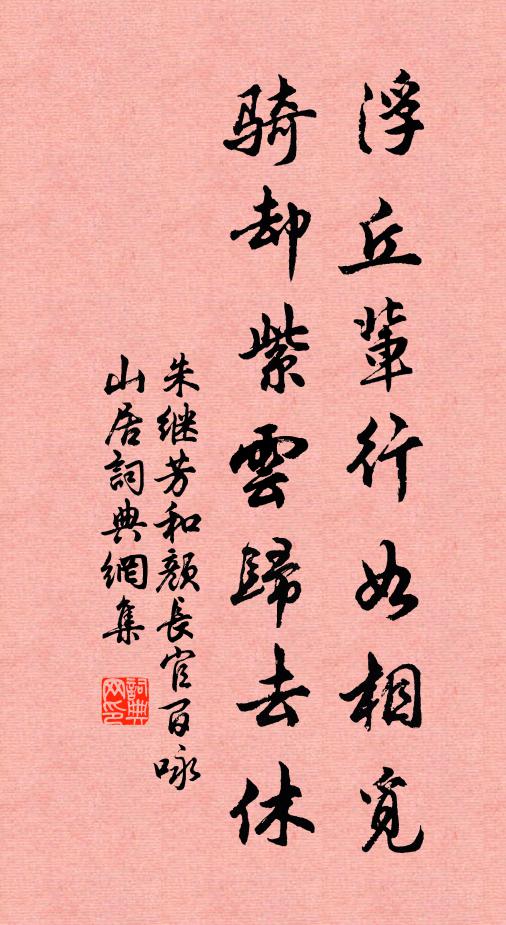 浮丘輩行如相覓
騎却紫雲歸去休
朱继芳和顏長官百咏
山居詞典網集
詞典网印